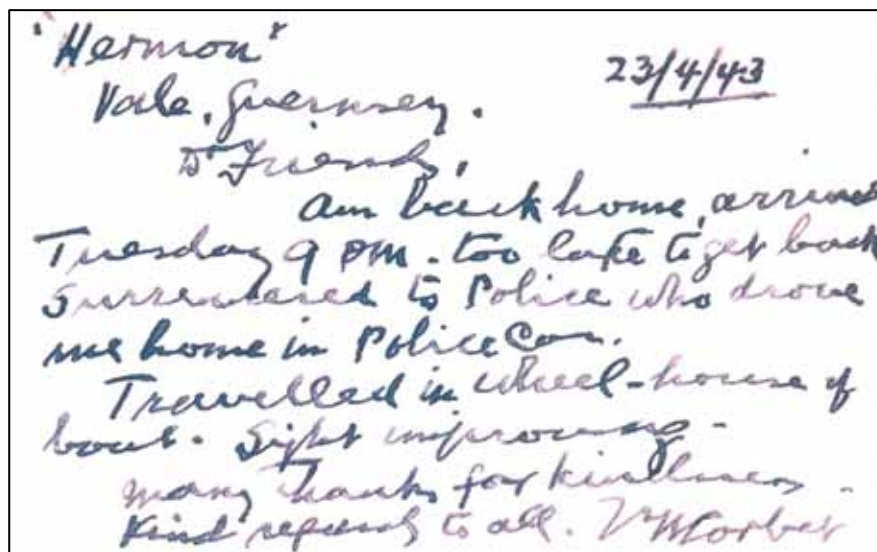 "Hermon"
23/4/43
Vale, Guernsey.
Dr Friends,
am back home, arrived
Tuesday 9 PM. too late to get back
Surrendered to Police who drove
me home in Police Car.
Travelled in wheel-house of
boat. Sight improving.
Many thanks for kindness.
Kind regards to all.